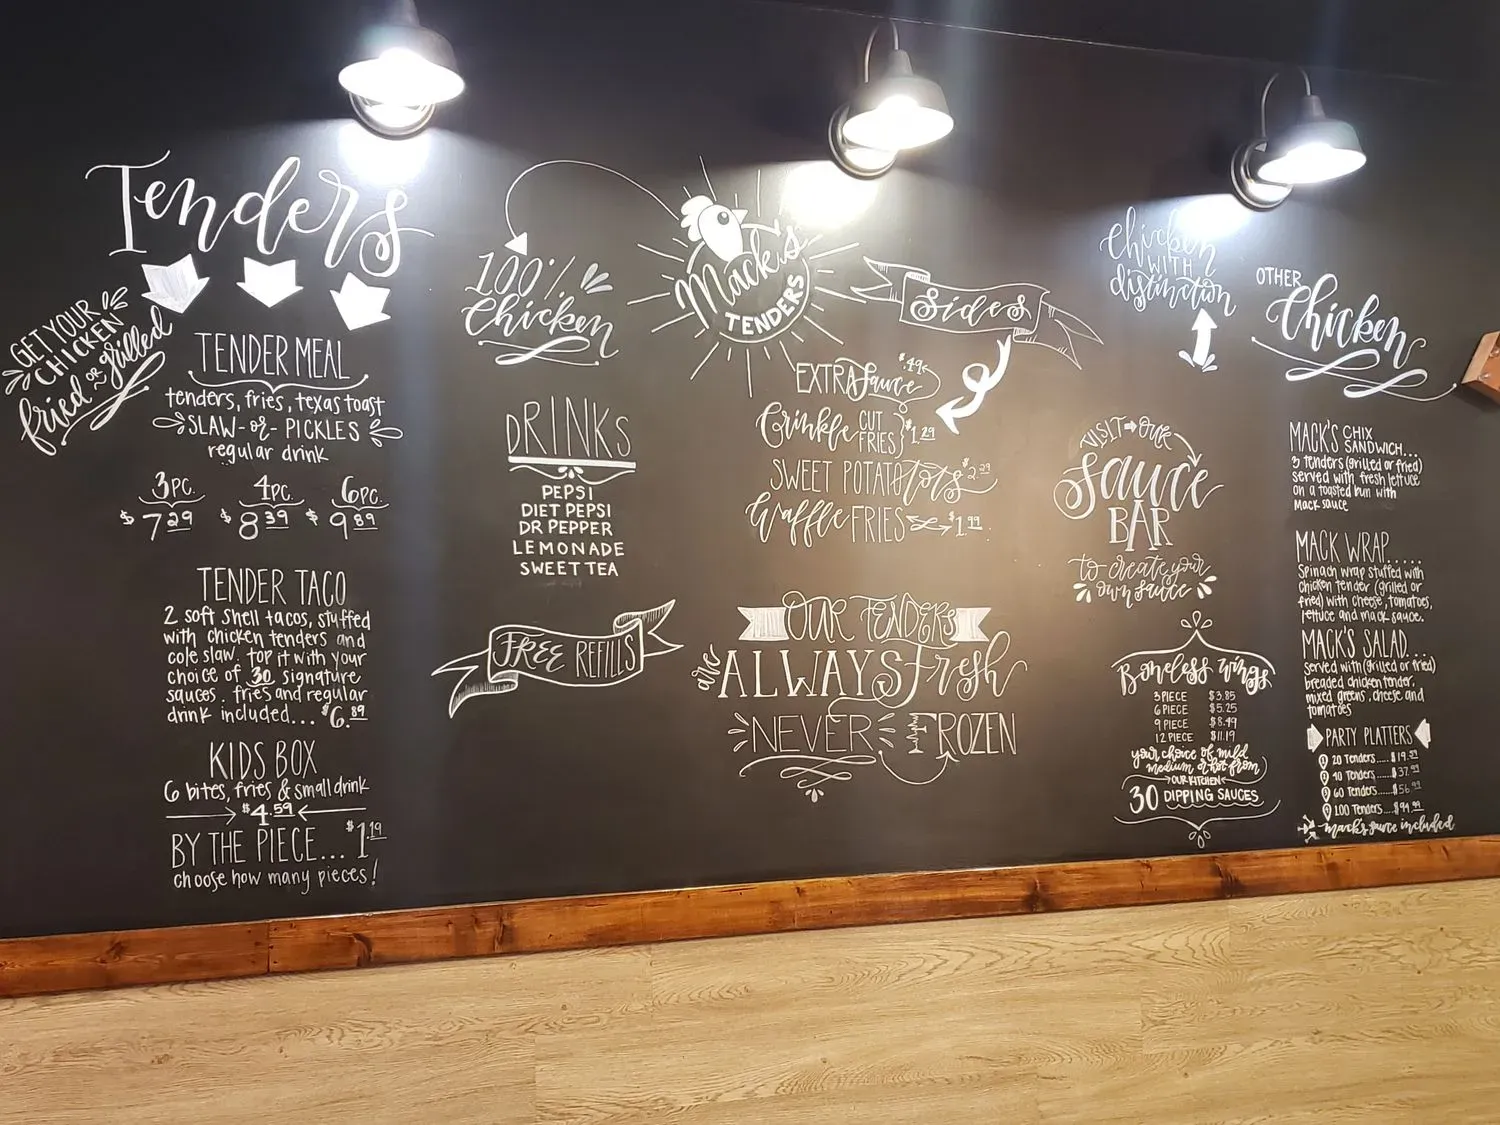 Tenders
GET YOUR
CHICKEN
fried or grilled
TENDER MEAL
tenders, fries, texas toast
SLAW -or- PICKLES
regular drink
3PC. 4PC. 6PC.
$7.29 $8.39 $9.89
TENDER TACO
2 soft shell tacos, stuffed
with chicken tenders and
cole slaw. top it with your
choice of 30 signature
sauces. fries and regular
drink included... $6.89
KIDS BOX
6 bites, fries & small drink
$4.59
BY THE PIECE... $1.19
choose how many pieces!
100%
Chicken
DRINKS
PEPSI
DIET PEPSI
DR PEPPER
LEMONADE
SWEET TEA
FREE REFILLS
Mack's
TENDERS
Sides
EXTRA Sauce $.49
Crinkle CUT FRIES $1.29
SWEET POTATO Tots $2.29
Waffle FRIES $1.99
OUR TENDERS
are ALWAYS Fresh
NEVER FROZEN
Chicken
WITH
distinction
VISIT OUR
Sauce
BAR
to create your
own sauce
Boneless wings
3 PIECE $3.85
6 PIECE $5.25
9 PIECE $8.49
12 PIECE $11.19
your choice of mild
medium or hot from
OUR KITCHEN
30 DIPPING SAUCES
OTHER
Chicken
MACK'S CHIX SANDWICH...
3 tenders (grilled or fried)
served with fresh lettuce
on a toasted bun with
Mack sauce
MACK WRAP.....
Spinach wrap stuffed with
chicken tender (grilled or
fried) with cheese, tomatoes,
lettuce and mack sauce.
MACK'S SALAD....
Served with (grilled or fried)
breaded chicken tender,
mixed greens, cheese and
tomatoes
PARTY PLATTERS
20 Tenders.....$19.
40 Tenders....$37.99
60 Tenders.....$56.
100 Tenders...$94.99
mack's sauce included